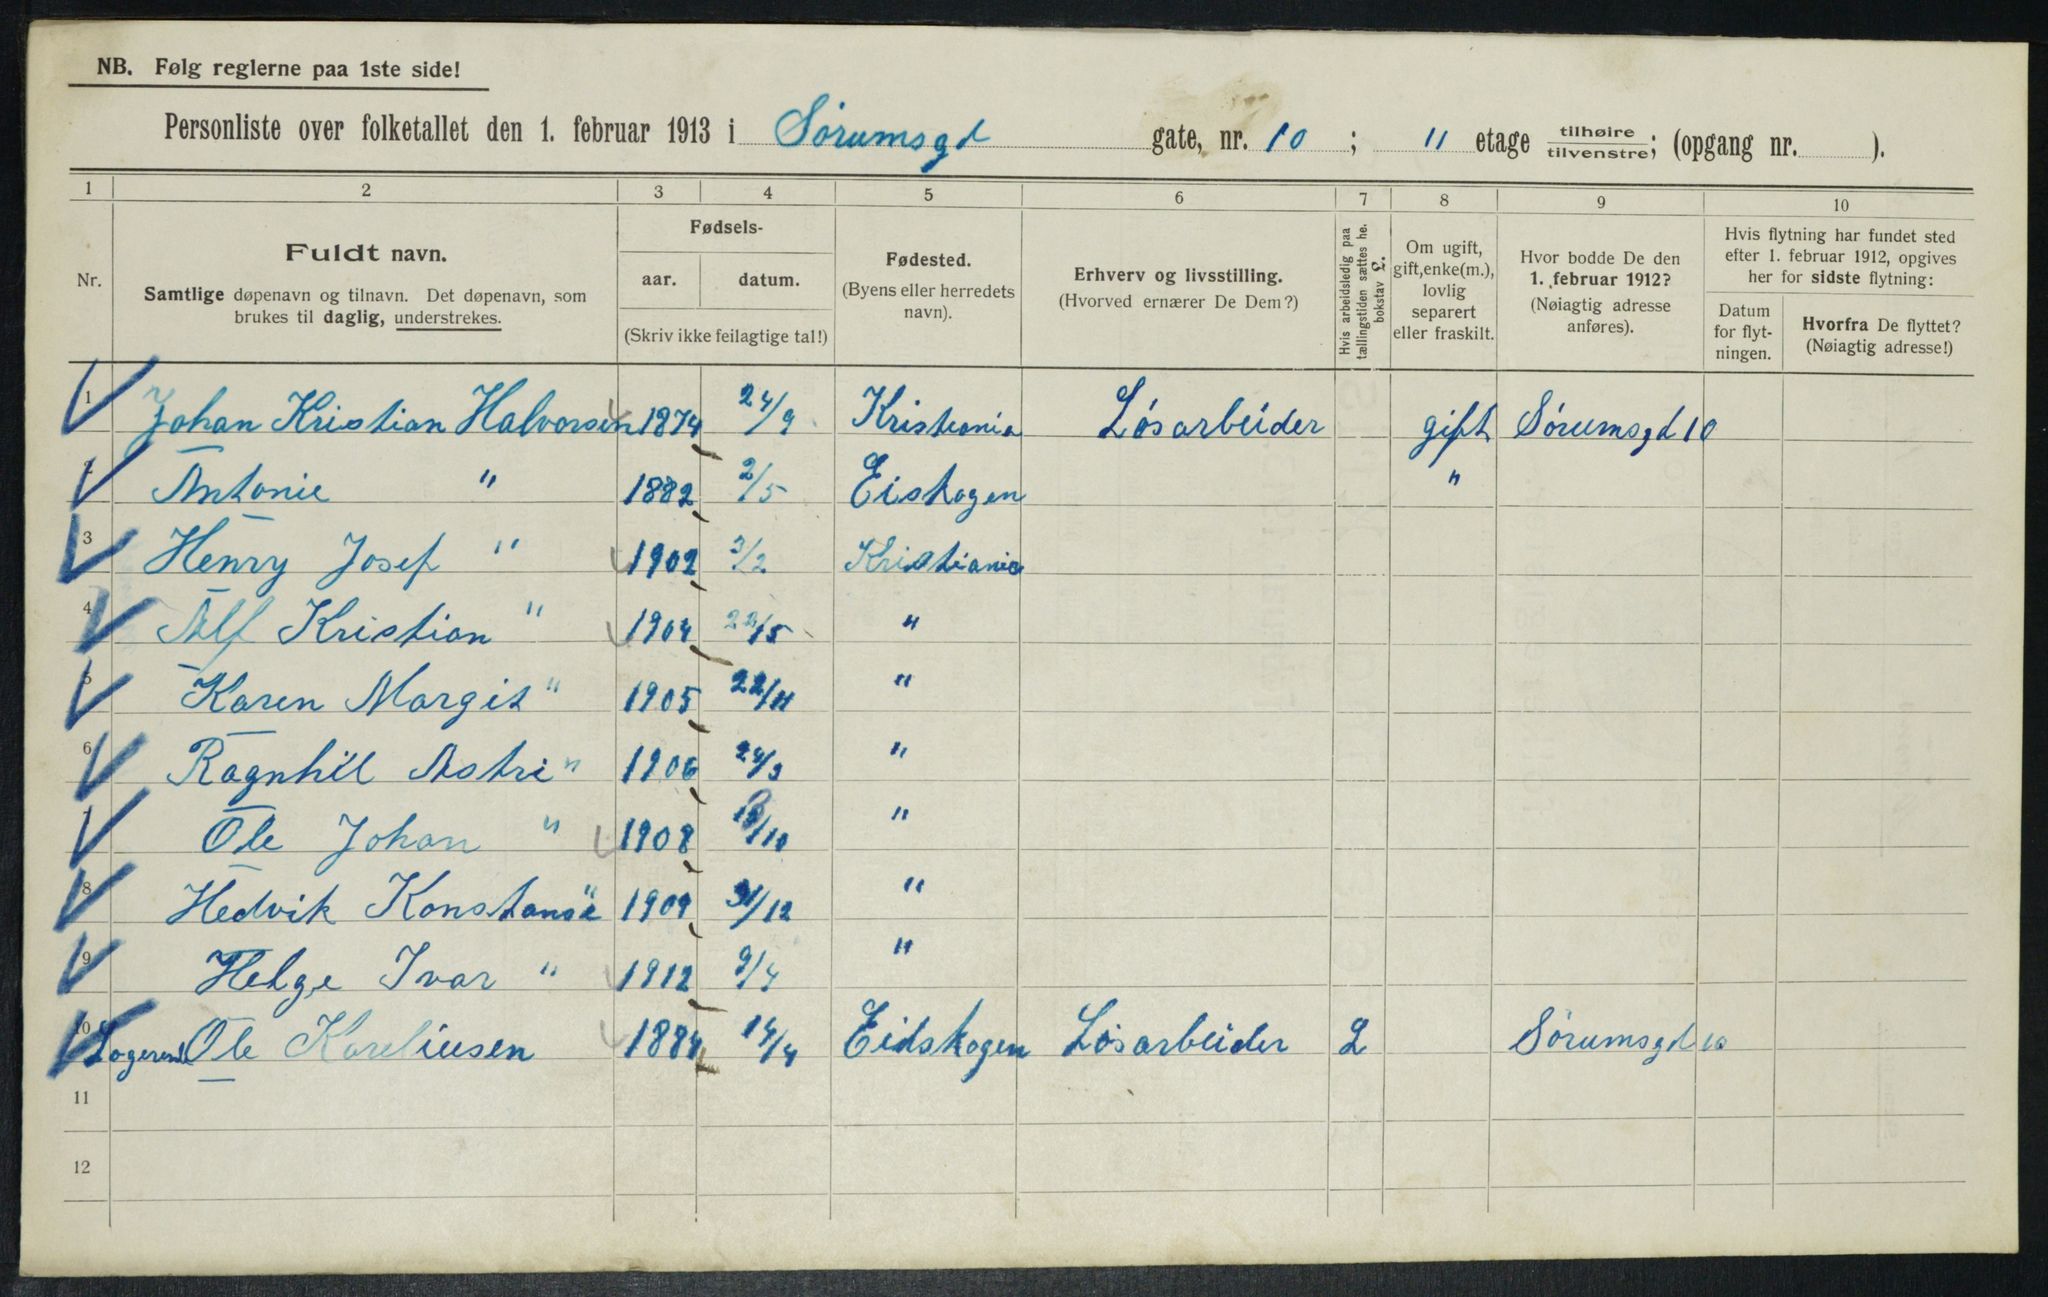 NB. Følg reglerne paa 1ste side!
Personliste over folketallet den 1. februar 1913 i Sørumsgd gate, nr. 10 ; 11 etage tilhøire tilvenstre; (opgang nr. ).
1 2 3 4 5 6 7 8 9 10
Nr.
Fuldt navn.
Samtlige døpenavn og tilnavn. Det døpenavn, som
brukes til daglig, understrekes.
Fødsels-
aar. datum.
(Skriv ikke feilagtige tal!)
Fødested.
(Byens eller herredets
navn).
Erhverv og livsstilling.
(Hvorved ernærer De Dem?)
Hvis arbeidsledig paa
tællingstiden sættes he.
bokstav L.
Om ugift,
gift, enke(m.),
lovlig
separert
eller fraskilt.
Hvor bodde De den
1. februar 1912?
(Nøiagtig adresse
anføres).
Hvis flytning har fundet sted
efter 1. februar 1912, opgives
her for sidste flytning:
Datum
for flyt-
ningen.
Hvorfra De flyttet?
(Nøiagtig adresse!)
1 Johan Kristian Halvorsen 1874 24/9 Kristiania Løsarbeider gift Sørumsgd 10
2 Antonie " 1882 2/5 Eiskogen "
3 Henry Josef " 1902 3/2 Kristiania
4 Alf Kristian " 1904 22/5 "
5 Karen Margit " 1905 22/11 "
6 Ragnhil Astri " 1906 24/9 "
7 Ole Johan " 1908 /10 "
8 Hedvik Konstanse " 1909 31/12 "
9 Helge Ivar " 1912 9/4 "
10 Logerend Ole Kareliusen 1884 14/4 Eidskogen Løsarbeider L Sørumsgd 10
11
12